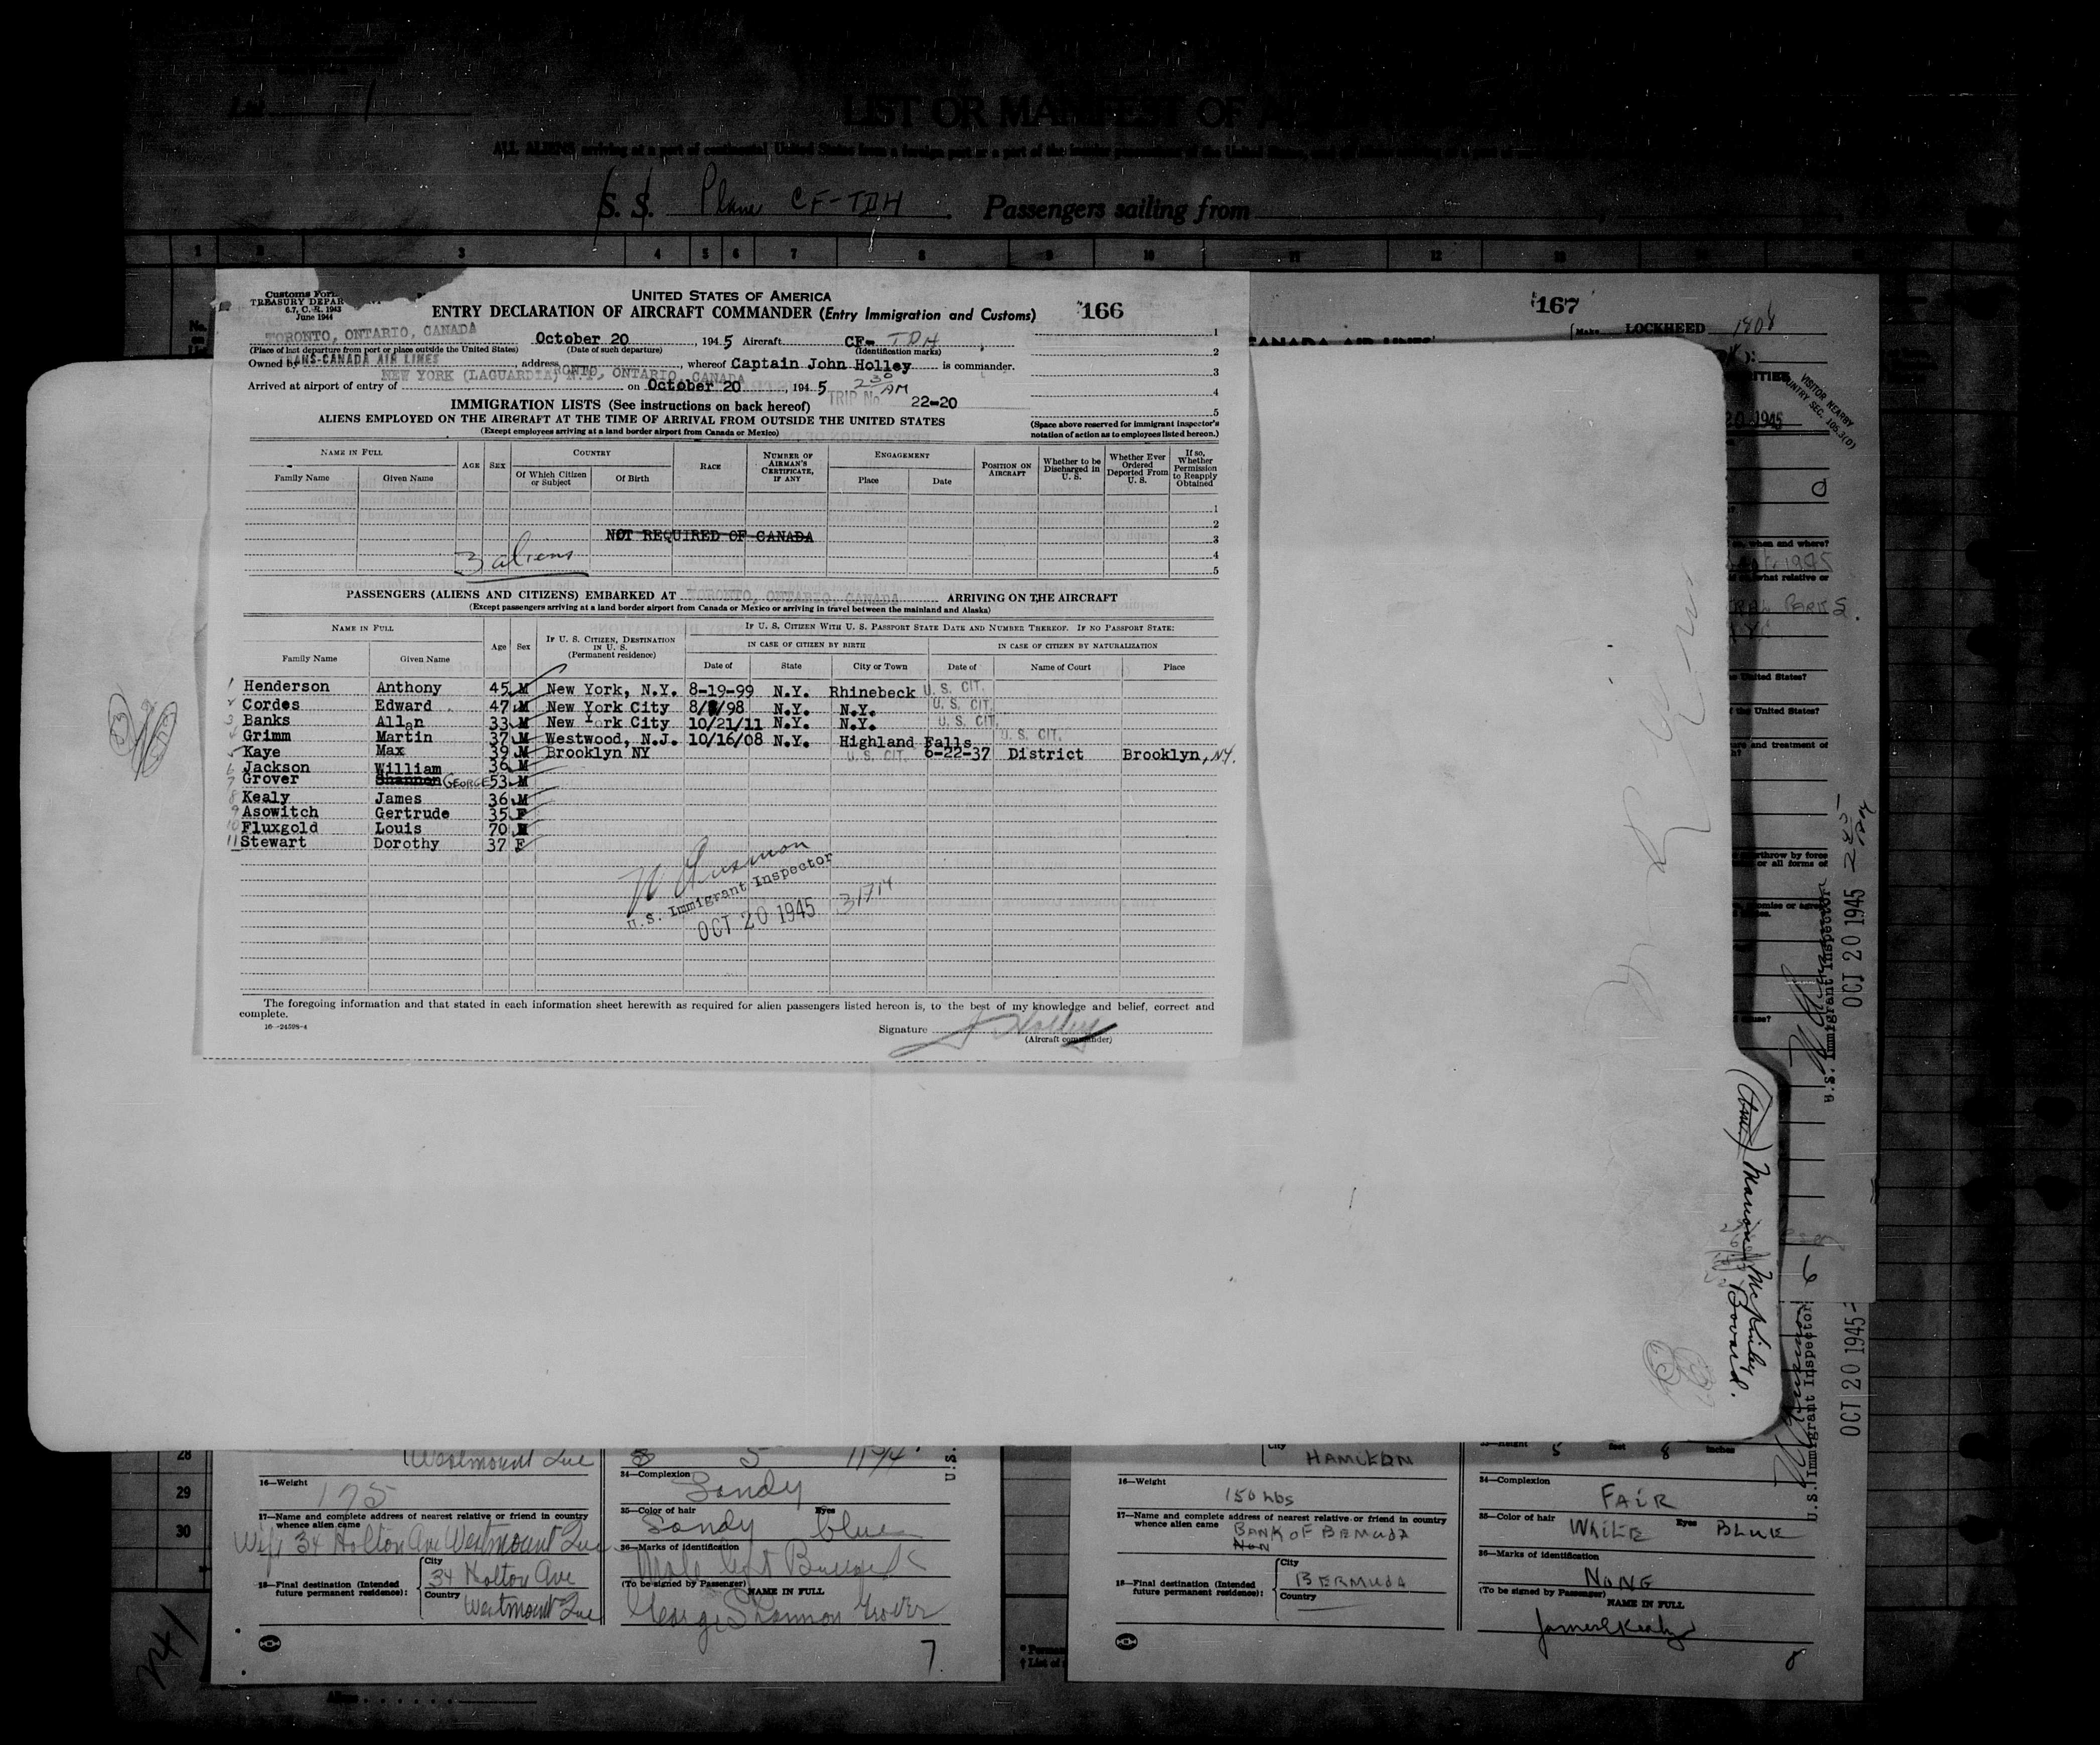 List 1
LIST OR MANIFEST OF
ALL ALIENS arriving at a port of continental United States from a foreign port or a port of the insular possessions of the United States,
S. S. Plane CF-TDH Passengers sailing from
1 2 3 4 5 6 7 8 9 10 11 12 13
Customs Form
TREASURY DEPAR
6.7, C. R. 1943
June 1944
UNITED STATES OF AMERICA
ENTRY DECLARATION OF AIRCRAFT COMMANDER (Entry Immigration and Customs)
166
TORONTO, ONTARIO, CANADA October 20, 1945 Aircraft CF- TDH
(Place of last departure from port or place outside the United States) (Date of such departure) (Identification marks)
Owned by TRANS-CANADA AIR LINES, address TORONTO, ONTARIO, CANADA, whereof Captain John Holley is commander.
Arrived at airport of entry of NEW YORK (LAGUARDIA) N.Y. on October 20, 1945 230 AM
TRIP No. 22-20
1
2
3
4
5
(Space above reserved for immigrant inspector's notation of action as to employees listed hereon.)
IMMIGRATION LISTS (See instructions on back hereof)
ALIENS EMPLOYED ON THE AIRCRAFT AT THE TIME OF ARRIVAL FROM OUTSIDE THE UNITED STATES
(Except employees arriving at a land border airport from Canada or Mexico)
NAME IN FULL AGE SEX COUNTRY RACE NUMBER OF AIRMAN'S CERTIFICATE, IF ANY ENGAGEMENT POSITION ON AIRCRAFT Whether to be Discharged in U. S. Whether Ever Ordered Deported From U. S. If so, Whether Permission to Reapply Obtained
Family Name Given Name Of Which Citizen or Subject Of Birth Place Date
1
2
NOT REQUIRED OF CANADA 3
3 aliens 4
5
PASSENGERS (ALIENS AND CITIZENS) EMBARKED AT TORONTO, ONTARIO, CANADA ARRIVING ON THE AIRCRAFT
(Except passengers arriving at a land border airport from Canada or Mexico or arriving in travel between the mainland and Alaska)
NAME IN FULL Age Sex IF U. S. CITIZEN, DESTINATION IN U. S. (Permanent residence) IF U. S. CITIZEN WITH U. S. PASSPORT STATE DATE AND NUMBER THEREOF. IF NO PASSPORT STATE:
IN CASE OF CITIZEN BY BIRTH IN CASE OF CITIZEN BY NATURALIZATION
Family Name Given Name Date of State City or Town Date of Name of Court Place
1 Henderson Anthony 45 M New York, N.Y. 8-19-99 N.Y. Rhinebeck U. S. CIT.
2 Cordes Edward 47 M New York City 8/8/98 N.Y. N.Y. U. S. CIT.
3 Banks Allan 33 M New York City 10/21/11 N.Y. N.Y. U. S. CIT.
4 Grimm Martin 37 M Westwood, N.J. 10/16/08 N.Y. Highland Falls U. S. CIT.
5 Kaye Max 39 M Brooklyn NY U. S. CIT. 6-22-37 District Brooklyn, NY.
6 Jackson William 36 M
7 Grover Shannon GEORGE 53 M
8 Kealy James 36 M
9 Asowitch Gertrude 35 F
10 Fluxgold Louis 70 M
11 Stewart Dorothy 37 F
U.S. Immigrant Inspector
OCT 20 1945
The foregoing information and that stated in each information sheet herewith as required for alien passengers listed hereon is, to the best of my knowledge and belief, correct and
complete.
16-24598-4
Signature J Holley
(Aircraft commander)
167
Make LOCKHEED 1808
CANADA AIR LINES
VISITOR NEARBY
COUNTRY SEC. 105.3(D)
20 1945
when and where?
what relative or
United States?
the United States?
and treatment of
overthrow by force
or all forms of
U.S. Immigrant Inspector
OCT 20 1945 245 AM
(Cont.) Marion McKinley Bovard.
U.S. Immigrant Inspector
OCT 20 1945
28
29
30
Westmount Que
16—Weight 175
17—Name and complete address of nearest relative or friend in country whence alien came
Wife 34 Holton Ave Westmount Que
18—Final destination (Intended future permanent residence):
City 34 Holton Ave
Country Westmount Que
5 11¾
34—Complexion Sandy
35—Color of hair Sandy Eyes blue
36—Marks of identification
(To be signed by Passenger) NAME IN FULL
George Shannon Grover
7
City HAMILTON
16—Weight 150 lbs
17—Name and complete address of nearest relative or friend in country whence alien came
BANK OF BERMUDA
18—Final destination (Intended future permanent residence):
City BERMUDA
Country
Height 5 feet 8 inches
34—Complexion FAIR
35—Color of hair WHITE Eyes BLUE
36—Marks of identification
NONE
(To be signed by Passenger) NAME IN FULL
James Kealy
8
Alien